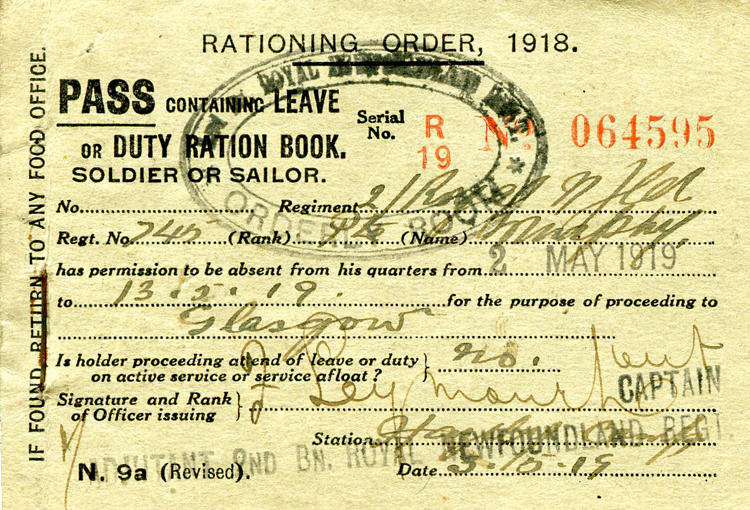 RATIONING ORDER, 1918.
PASS CONTAINING LEAVE
OR DUTY RATION BOOK.
SOLDIER OR SAILOR.
Serial No. R 19 No. 064595
ROYAL NEWFOUNDLAND REGT. * ORDERLY ROOM
No. Regiment 2/Royal Nfld
Regt. No. 745 (Rank) Pte (Name) Murphy
has permission to be absent from his quarters from 2 MAY 1919
to 13.5.19. for the purpose of proceeding to
Glasgow
Is holder proceeding at end of leave or duty
on active service or service afloat? } no.
Signature and Rank
of Officer issuing } Seymour
CAPTAIN
Station
ADJUTANT 2ND BN. ROYAL NEWFOUNDLAND REGT.
N. 9a (Revised). Date 19
IF FOUND RETURN TO ANY FOOD OFFICE.